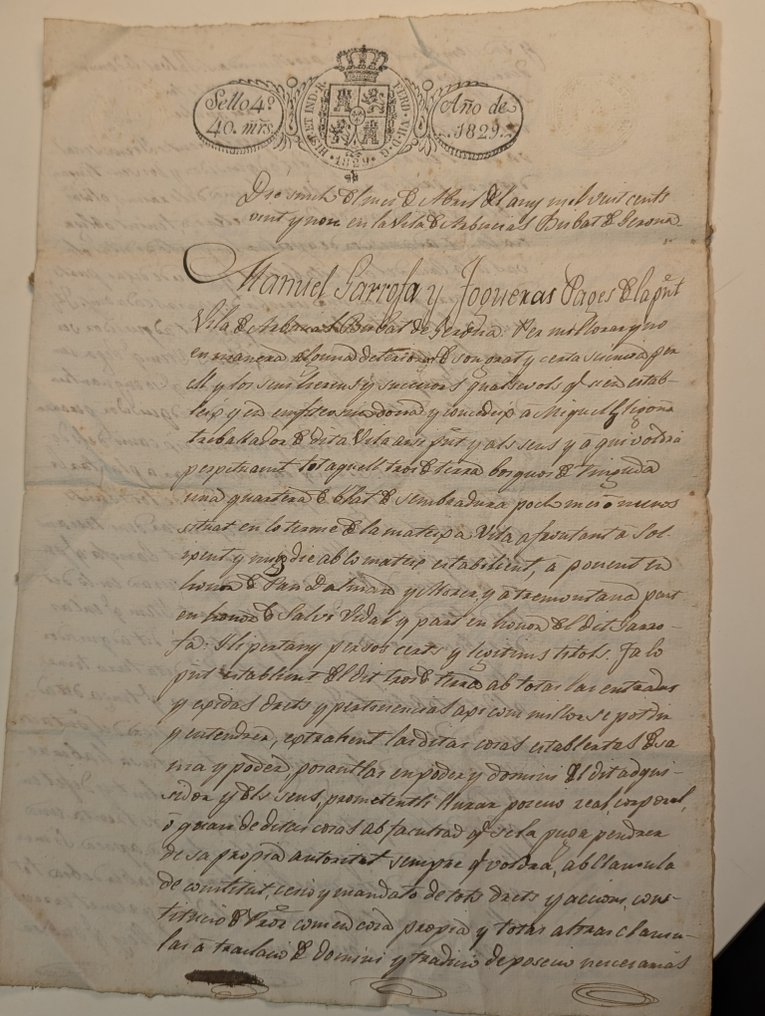 Sello 4º
40. mrs.
HISP. ET IND. R.
FERD. VII. D. G.
1829.
Año de
1829.
Die vint del mes de Abril del any mil vuit cents
vint y nou en la Vila de Arbucias Bisbat de Gerona.
Manuel Sarrofa y Jogueras Pages de la pnt
Vila de Arbucias Bisbat de Gerona: Per millorar y no
en manera alguna deteriorar de son grat y certa sciencia per
ell y los seus hereus y successors qualsevols q sien estab-
leix y en emfiteusim dona y concedeix â Miquel
treballador de dita Vila assi pnt y als seus y á qui voldrá
perpetuament tot aquell tros de terra boscosa de tinguda
una quartera de blat de sembradura poch mes o menos
situat en lo terme de la mateixa Vila afrontant á Sol-
ixent y mitg die ab lo mateix estabilient, á ponent en
honor de Pau Dalmau y Morer, y á tremontana part
en honor de Salvi Vidal y part en honor del dit Sarro-
fa: Y li pertany per sos certs y legitims titols. Fa lo
pnt establiment del dit tros de terra ab totas las entradas
y exidas drets y pertinencias axi com millor se pot dir
y entendrer, extrahent las ditas cosas establertas de sa
ma y poder, posantlas en poder y domini del dit adqui-
sidor y dels seus, prometentli lliurar posecio real, corporal,
ó quasi de ditas cosas ab facultad q se la puga pendrer
de sa propia autoritat sempre q voldrá, ab clausula
de constitut, cecio y mandato de tots drets y accions, cons-
titució de Pror com en cosa propia y totas altras clausu-
las a translacio de domini y tradicio de posecio necesarias